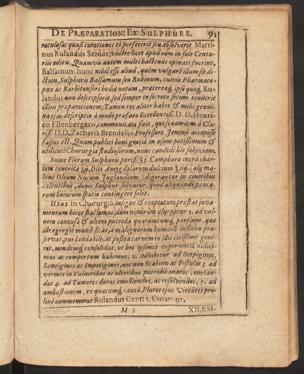 DE PRÆPARATION: EX SULPHURE. 91
raculosas quasi curationes eò perfecerit seu absolverit Marti-
nus Rulandus Senior, videre licet apud eum in suis Centu-
riis editis. Quamvis autem multi hactenus opinati fuerint,
Balsamum hunc nihil esse aliud, quàm vulgare illum sic di-
ctum, Sulphuris Balsamum seu Rubinum, cuivis Pharmaco-
pœo ac Barbitonsori notum, prætereaq; ipse quoq; Ru-
landus non descripserit sed semper in secreto secum tenuerit
illius præparationem; Tamen res aliter habet, & mihi genui-
na ejus descriptio à modo præfato Excellentiß. D. D. Henri-
co Ellenbergero, communicata fuit, quis eandem à Cla-
riß. D. D. Zacharia Brendelio, Professore Jenensi accepisse
fassus est. Quam publici boni gratia in usum potissimum &
utilitatem Chirurgiæ studiosorum, nunc candidè hic subjiciam.
Sume Florum Sulphuris puriß. ℥j. Camphoræ cum chari-
tem contrita ʒij. Olei Amygdalarum dulcium ℥
bini Oleum Nucum Juglandium digerantur in cineribus
calentibus, donec Sulphur solvatur, quod aliquando pauca-
rum horarum spatio contingere solet.
Usus in Chirurgia insignis & exoptatum præstat juva-
mentum hicce Balsamus, dum nimirum usurpatur 1. ad vul-
nera contusa & ulcera putrida quæcunque, partium, quæ
ab
servat, pus laudabile, at postea carnem
rat, tandemq; consolidat, ut hoc ipsemet experientiâ didici-
mus ac compertum habemus. 2. Adhibetur ad Serpigines,
Lentigines ac Impetigines, nec non Scabiem ac Fistulas; 3. ad
vermes in Vulneribus ac ulceribus putridis enatos, enecan-
dos 4. ad Tumores duros emolliendos, ac resolvendos. 5. ad
ambustionem, ex quacunq; causâ. Plures ejus Virtutes pro-
lixè commemorat Rulandus Cent: 1. Curat: 92.
M 2 XII. EM-